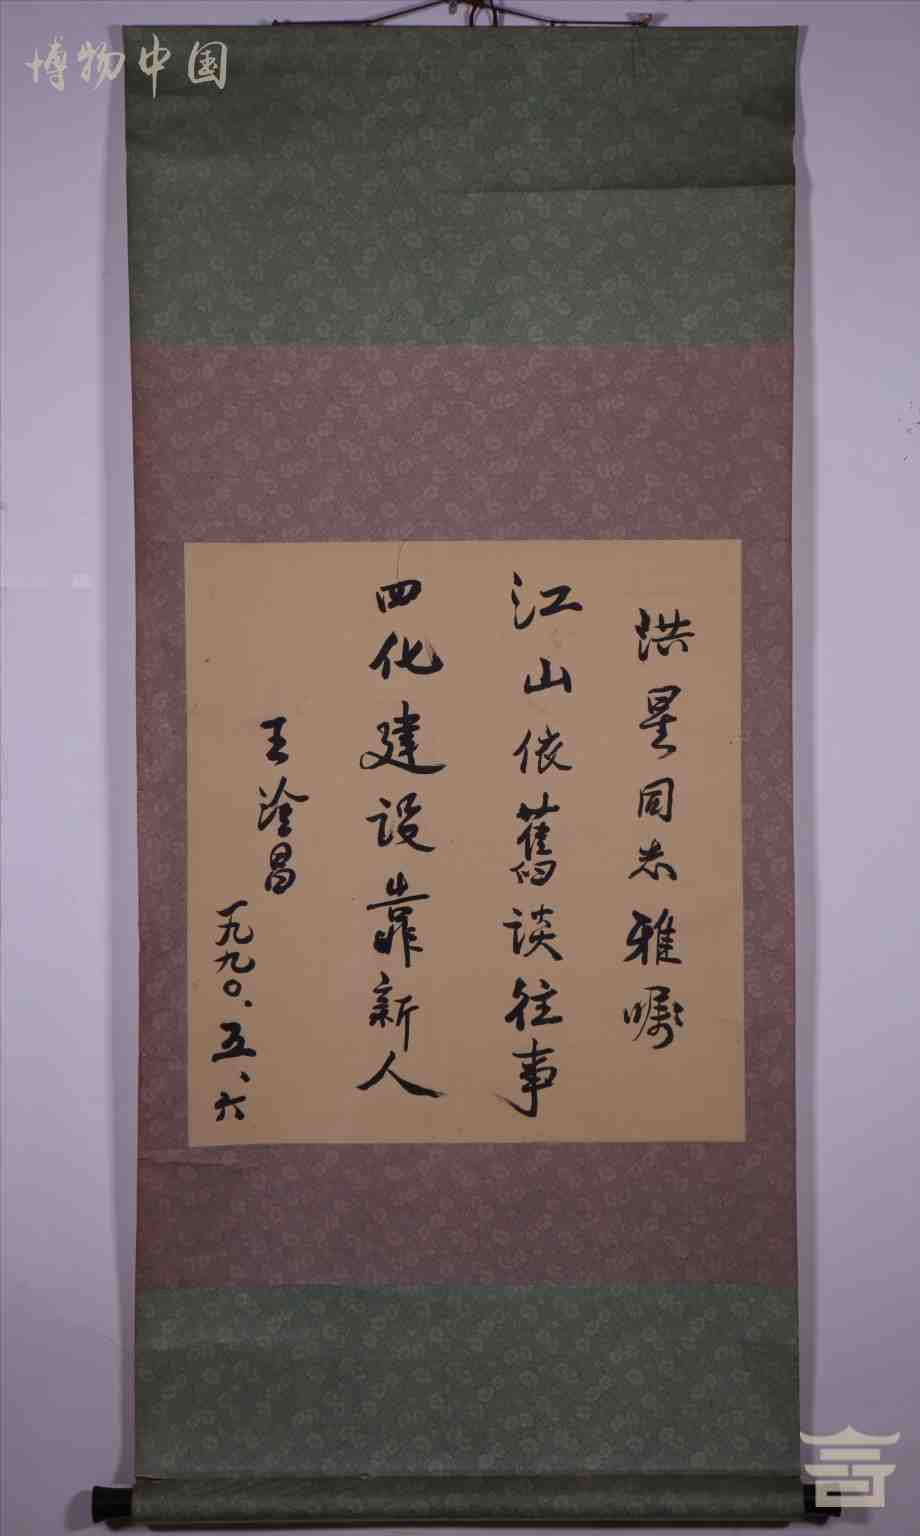 博物中国
洪星同志雅嘱
江山依舊谈往事
四化建设靠新人
王淦昌
一九九〇.五、六